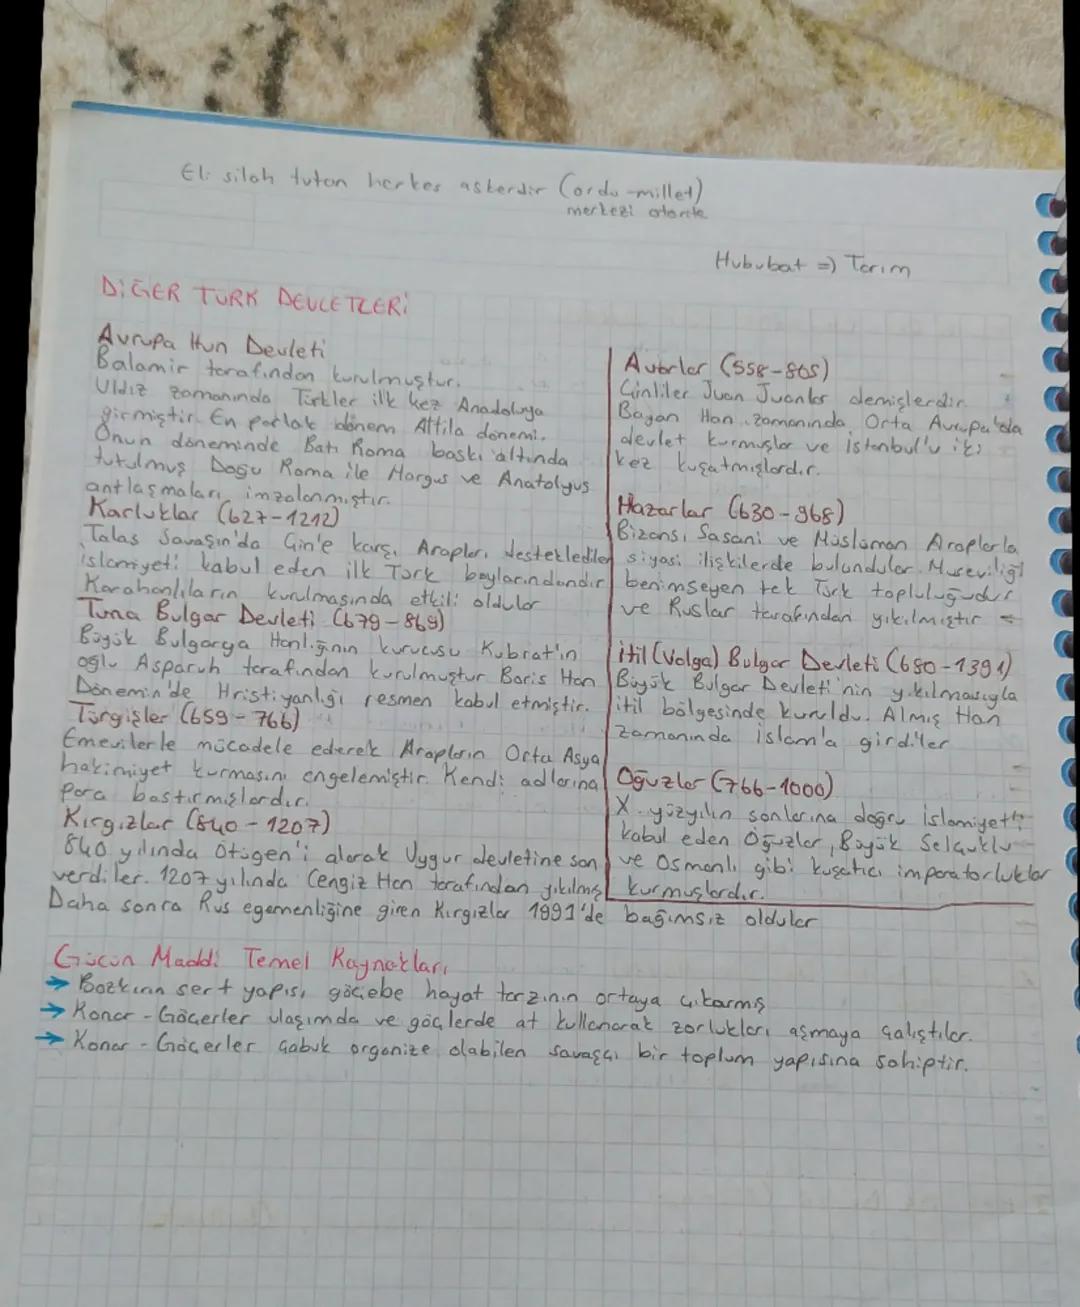 Eli silah tutan herkes askerdir (ordu-millet)
merkezi otorite
Hububat => Tarım
DİĞER TÜRK DEVLETLERİ
Avrupa Hun Devleti
Balamir tarafından kurulmuştur.
Uldız zamanında Türkler ilk kez Anadoluya
girmiştir. En parlak dönem Attila dönemi.
Onun döneminde Batı Roma baskı altında
tutulmuş Doğu Roma ile Margus ve Anatolyus
antlaşmaları imzalanmıştır.
Karluklar (627-1212)
Talas Savaşın'da Çin'e karşı Arapları desteklediler
islamiyeti kabul eden ilk Türk boylarındandır
Karahanlıların kurulmasında etkili oldular
Tuna Bulgar Devleti (679-869)
Büyük Bulgarya Hanlığının kurucusu Kubrat'ın
oğlu Asparuh tarafından kurulmuştur Boris Han
Dönemin'de Hristiyanlığı resmen kabul etmiştir.
Türgişler (659-766)
Emevilerle mücadele ederek Arapların Orta Asya
hakimiyet kurmasını engelemiştir. Kendi adlarına
para bastırmışlardır.
Kırgızlar (840-1207)
840 yılında Ötügen'i alarak Uygur devletine son
verdiler. 1207 yılında Cengiz Han tarafından yıkılmış
Daha sonra Rus egemenliğine giren Kırgızlar 1991'de bağımsız oldular
Avarlar (558-805)
Çinliler Juan Juanlar demişlerdir.
Bayan Han zamanında Orta Avrupa'da
devlet kurmuşlar ve istanbul'u iki
kez kuşatmışlardır.
Hazarlar (630-968)
Bizans, Sasani ve Müslüman Araplarla
siyasi ilişkilerde bulundular. Museviliği
benimseyen tek Türk topluluğudur
ve Ruslar tarafından yıkılmıştır
itil (Volga) Bulgar Devleti (680-1391)
Büyük Bulgar Devleti'nin yıkılmasıyla
itil bölgesinde kuruldu. Almış Han
zamanında islam'a girdiler
Oğuzlar (766-1000)
X. yüzyılın sonlarına doğru islamiyeti
kabul eden Oğuzlar, Büyük Selçuklu
ve Osmanlı gibi kuşatıcı imparatorluklar
kurmuşlardır.
Gücün Maddi Temel Kaynakları
→ Bozkırın sert yapısı, göçebe hayat tarzının ortaya çıkarmış
→ Konar-Göçerler ulaşımda ve göçlerde at kullanarak zorlukları aşmaya çalıştılar.
→ Konar-Göçerler çabuk organize olabilen savaşçı bir toplum yapısına sahiptir.